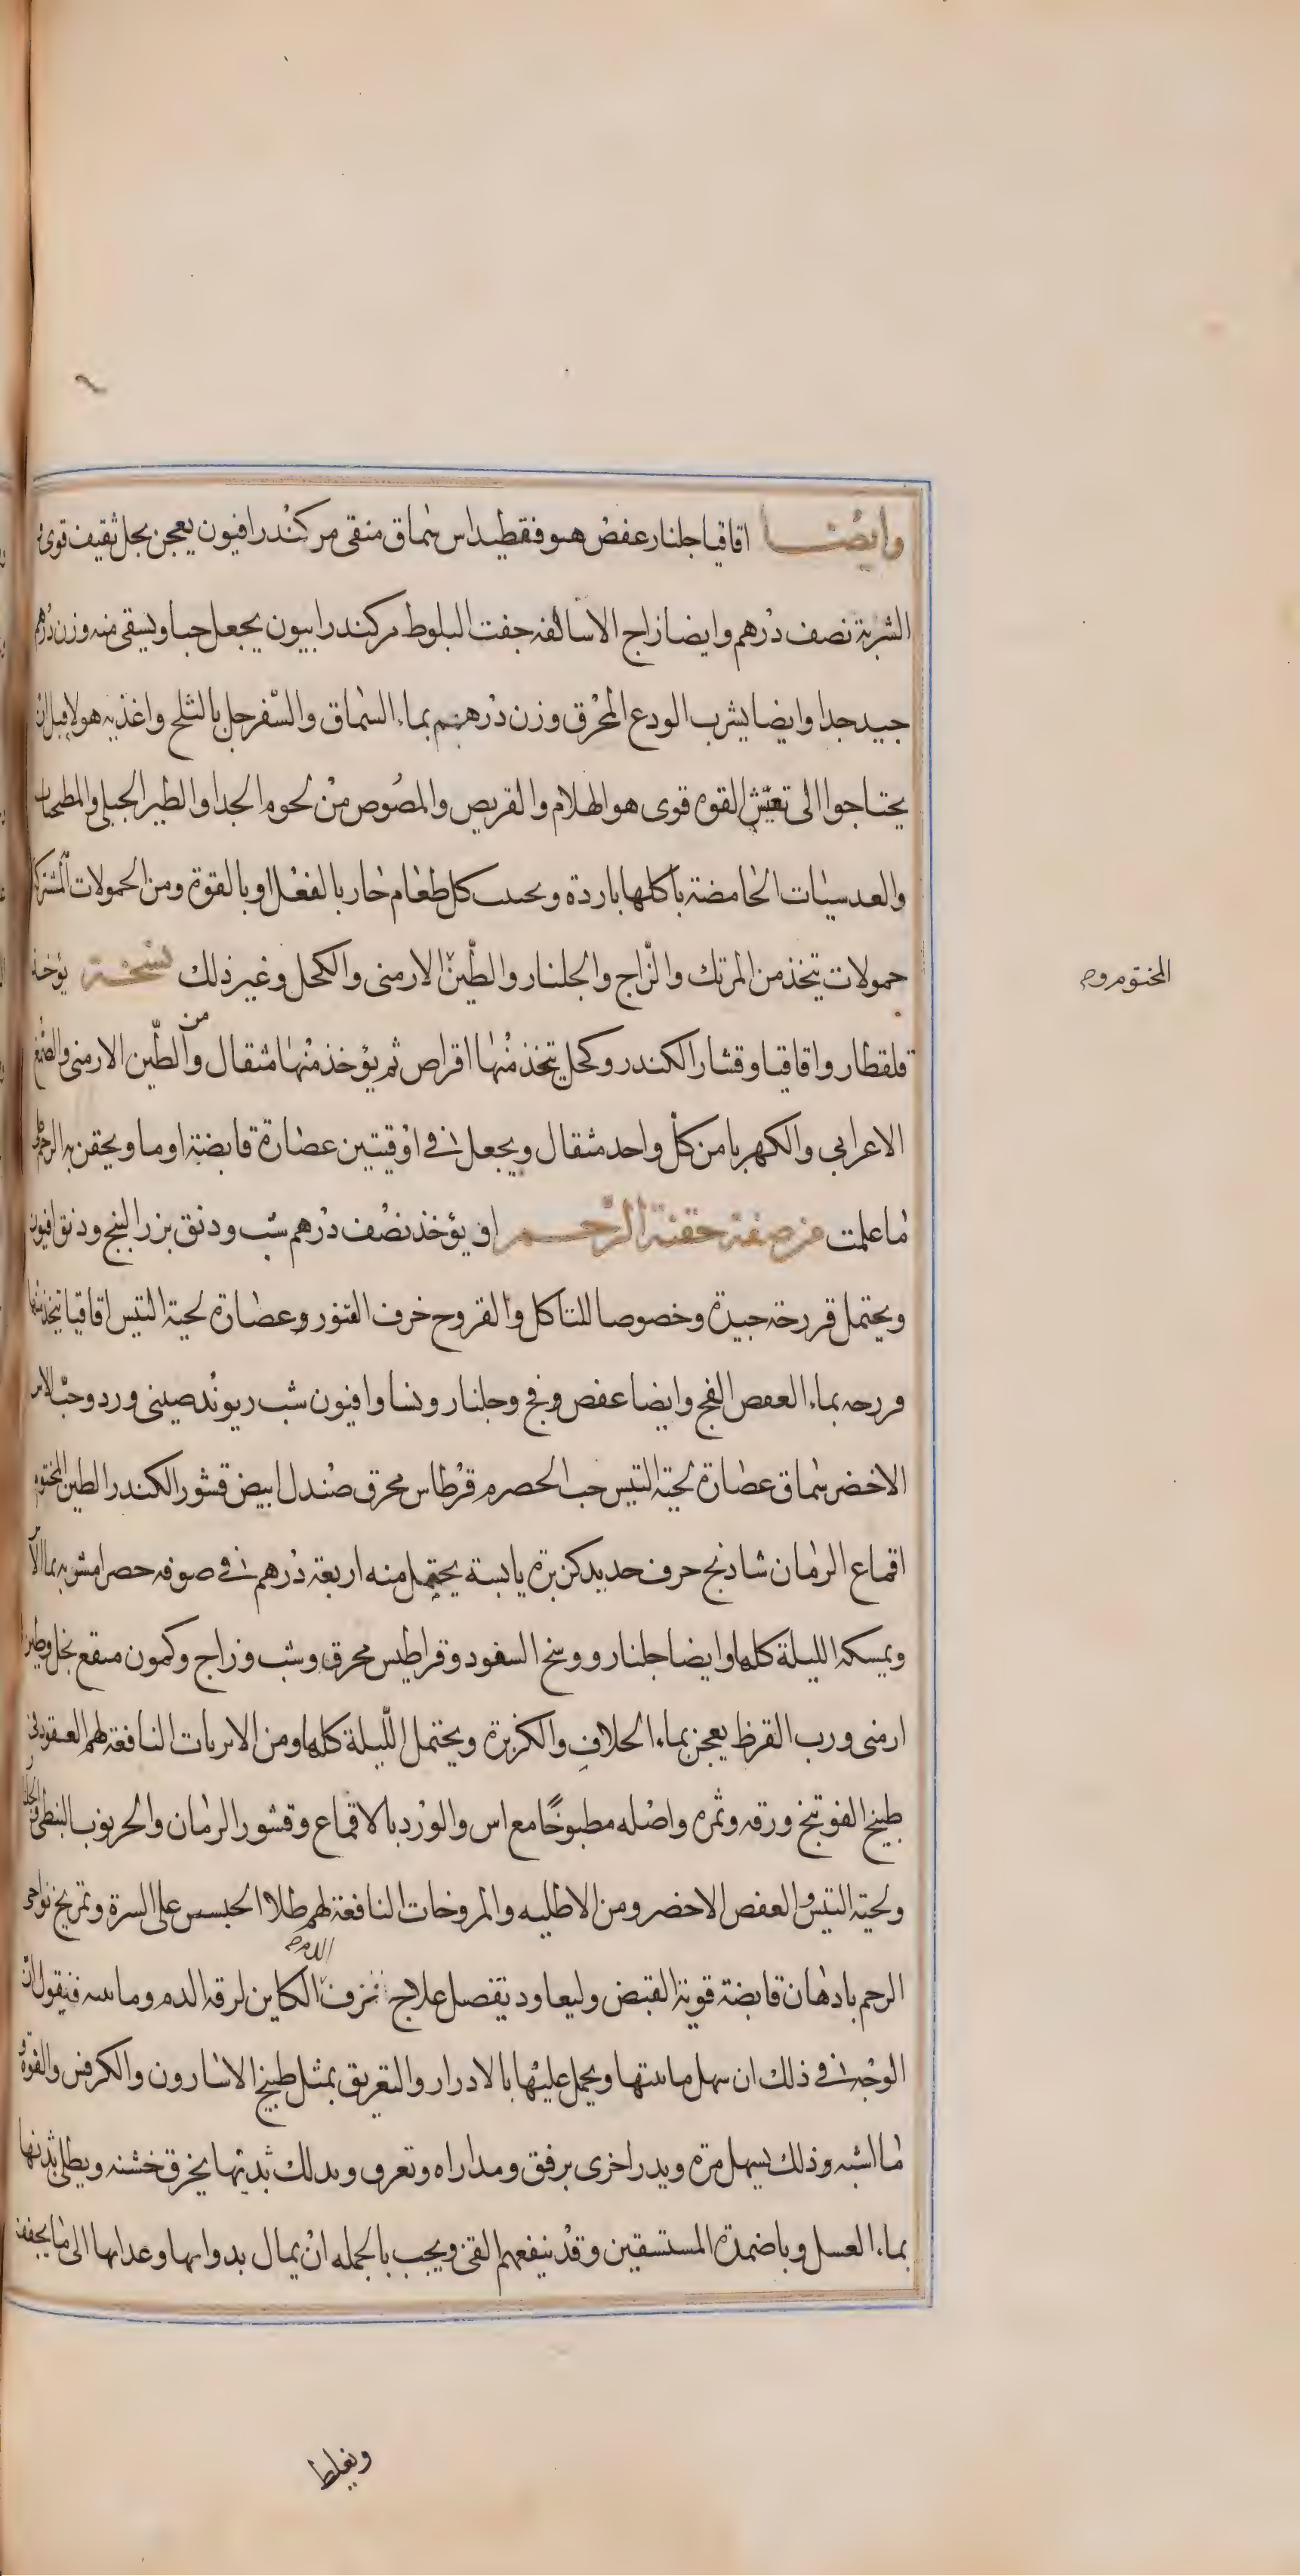 وايضا اقاقيا جلنار عفص هيوفقطيداس سماق منقى مر كندر افيون يعجن بخل ثقيف قوى
الشربة نصف درهم وايضا زاج الاساكفه جفت البلوط مر كندر ابيون يجعل حبا ويسقى منه وزن درهم
جيد جدا وايضا يشرب الودع المحرق وزن درهم بماء السماق والسفرجل بالثلج واغذيه هولا قبل ان
يحتاجوا الى تعيش القوه قوى هو الهلام والقريص والمصوص من لحوم الجدا والطير الجبلى والمطجنات
والعدسيات الحامضة باكلها باردة ويجنب كل طعام حار بالفعل او بالقوة ومن الحمولات المشتركة
حمولات تتخذ من المرتك والزاج والجلنار والطين الارمنى والكحل وغير ذلك نسخة يؤخذ
المختوم وم
قلقطار واقاقيا وقشار الكندر وكحل يتخذ منها اقراص ثم يؤخذ منها مثقال ومن الطين الارمنى والصمغ
الاعرابى والكهربا من كل واحد مثقال ويجعل فى اوقيتين عصارة قابضة او ما ويحقن به الرحم على
ما علمت من صفة حقنة الرحم او يؤخذ نصف درهم شب ودنق بزر البنج ودنق افيون
ويحتمل قررحة جيدة وخصوصا للتاكل والقروح خرف التنور وعصارة لحية التيس اقاقيا يتخذ منها
فررحه بماء العفص الفج وايضا عفص وفج وجلنار ونسا وافيون شب ريوند صينى ورد وحب الاس
الاخضر سماق عصارة لحية التيس حب الحصرم قرطاس محرق صندل ابيض قشور الكندر الطين المختوم
اقماع الرمان شاذنج حرف حديد كزبرة يابسة يحتمل منه اربعة درهم فى صوفه حصرا مشوبه بما الاس
ويمسكه الليلة كلها وايضا جلنار ووسخ السفود وقراطيس محرق وشب وزاج وكمون منقع بخل وطين
ارمنى ورب القرظ يعجن بماء الخلاف والكزبرة ويحتمل الليلة كلها ومن الابزيات النافعة لهم العقود فى
طبيخ الفوتنج ورقه وثمره واصله مطبوخا مع اس والورد بالاقماع وقشور الرمان والخرنوب النبطى والجلنار
ولحية التيس والعفص الاخضر ومن الاطليه والمروخات النافعة لهم طلاء الجبسيس على السرة وتمريخ نواحى
الرحم بادهان قابضة قوية القبض وليعاود بتفصيل علاج نزف الدم الكاين لرقه الدم ومائيته فنقول ان
الوجه فى ذلك ان يسهل مائيتها ويحمل عليها بالادرار والتعريق بمثل طبيخ الاسارون والكرفس والفوة و
ما اشبه وذلك يسهل مرة ويدر اخرى برفق ومداراه وتعرق ويدلك ثديها بخرق خشنه ويطلى بدنها
بماء العسل وباضمدة المستسقين وقد ينفعهم القئ ويجب بالجمله ان يمال بدوائها وغدائها الى ما يجفف
ويغلظ